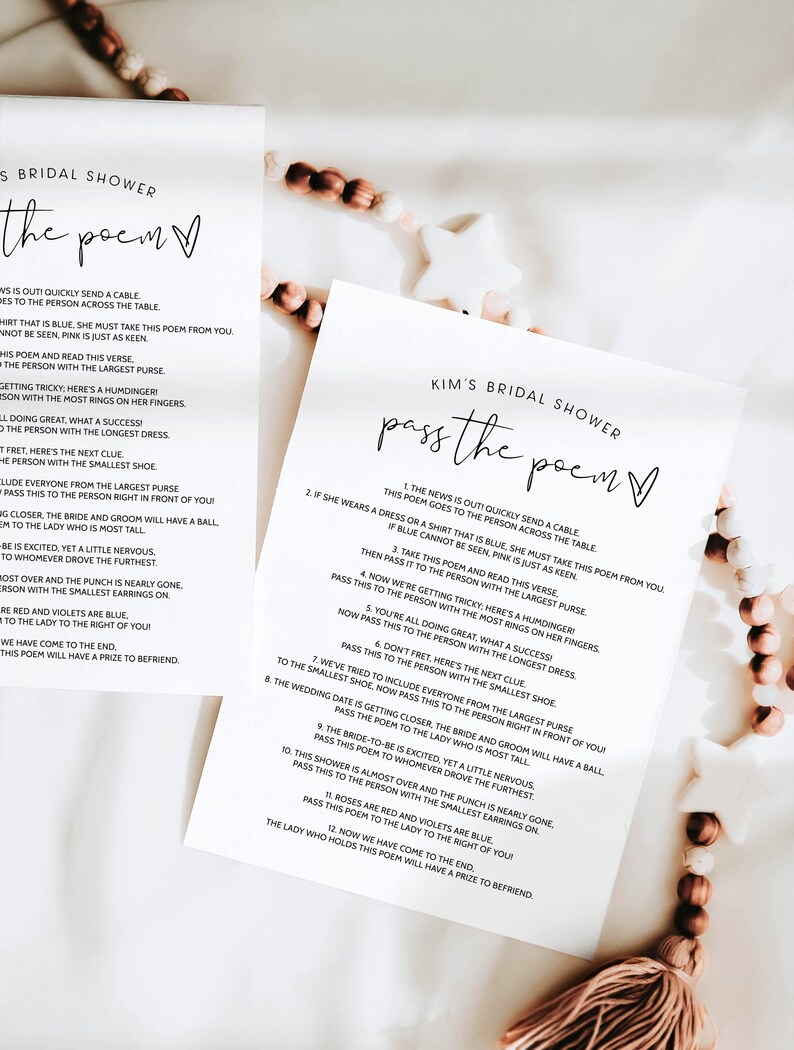 S BRIDAL SHOWER
the poem
WS IS OUT! QUICKLY SEND A CABLE.
OES TO THE PERSON ACROSS THE TABLE.
HIRT THAT IS BLUE, SHE MUST TAKE THIS POEM FROM YOU.
NNOT BE SEEN, PINK IS JUST AS KEEN.
HIS POEM AND READ THIS VERSE,
O THE PERSON WITH THE LARGEST PURSE.
GETTING TRICKY; HERE'S A HUMDINGER!
THE PERSON WITH THE MOST RINGS ON HER FINGERS.
LL DOING GREAT, WHAT A SUCCESS!
TO THE PERSON WITH THE LONGEST DRESS.
T FRET, HERE'S THE NEXT CLUE.
HE PERSON WITH THE SMALLEST SHOE.
CLUDE EVERYONE FROM THE LARGEST PURSE
W PASS THIS TO THE PERSON RIGHT IN FRONT OF YOU!
NG CLOSER, THE BRIDE AND GROOM WILL HAVE A BALL,
EM TO THE LADY WHO IS MOST TALL.
-BE IS EXCITED, YET A LITTLE NERVOUS,
TO WHOMEVER DROVE THE FURTHEST.
MOST OVER AND THE PUNCH IS NEARLY GONE,
PERSON WITH THE SMALLEST EARRINGS ON.
ARE RED AND VIOLETS ARE BLUE,
M TO THE LADY TO THE RIGHT OF YOU!
WE HAVE COME TO THE END,
THIS POEM WILL HAVE A PRIZE TO BEFRIEND.
KIM'S BRIDAL SHOWER
pass the poem
1. THE NEWS IS OUT! QUICKLY SEND A CABLE.
THIS POEM GOES TO THE PERSON ACROSS THE TABLE.
2. IF SHE WEARS A DRESS OR A SHIRT THAT IS BLUE, SHE MUST TAKE THIS POEM FROM YOU.
IF BLUE CANNOT BE SEEN, PINK IS JUST AS KEEN.
3. TAKE THIS POEM AND READ THIS VERSE,
THEN PASS IT TO THE PERSON WITH THE LARGEST PURSE.
4. NOW WE'RE GETTING TRICKY; HERE'S A HUMDINGER!
PASS THIS TO THE PERSON WITH THE MOST RINGS ON HER FINGERS.
5. YOU'RE ALL DOING GREAT, WHAT A SUCCESS!
NOW PASS THIS TO THE PERSON WITH THE LONGEST DRESS.
6. DON'T FRET, HERE'S THE NEXT CLUE.
PASS THIS TO THE PERSON WITH THE SMALLEST SHOE.
7. WE'VE TRIED TO INCLUDE EVERYONE FROM THE LARGEST PURSE
TO THE SMALLEST SHOE, NOW PASS THIS TO THE PERSON RIGHT IN FRONT OF YOU!
8. THE WEDDING DATE IS GETTING CLOSER, THE BRIDE AND GROOM WILL HAVE A BALL,
PASS THE POEM TO THE LADY WHO IS MOST TALL.
9. THE BRIDE-TO-BE IS EXCITED, YET A LITTLE NERVOUS,
PASS THIS POEM TO WHOMEVER DROVE THE FURTHEST.
10. THIS SHOWER IS ALMOST OVER AND THE PUNCH IS NEARLY GONE,
PASS THIS TO THE PERSON WITH THE SMALLEST EARRINGS ON.
11. ROSES ARE RED AND VIOLETS ARE BLUE,
PASS THIS POEM TO THE LADY TO THE RIGHT OF YOU!
12. NOW WE HAVE COME TO THE END,
THE LADY WHO HOLDS THIS POEM WILL HAVE A PRIZE TO BEFRIEND.